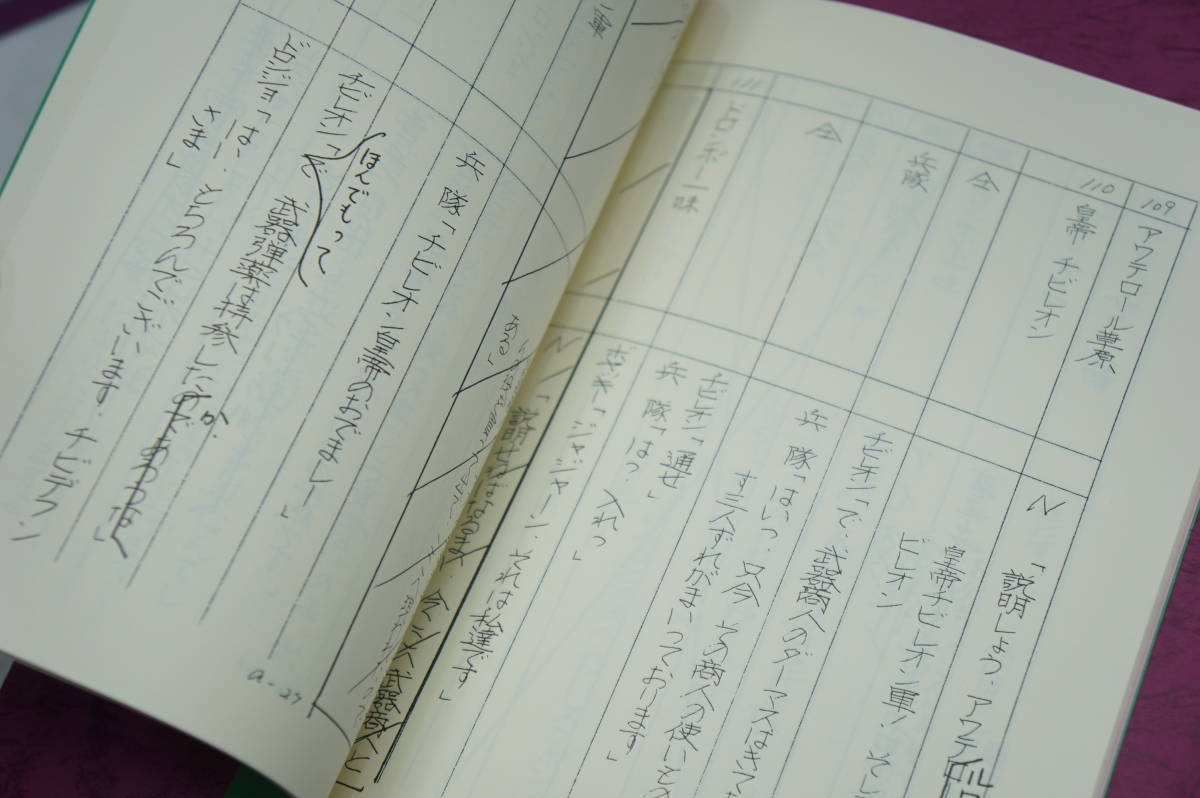 109
アウテロール草原
110
皇帝 チビレオン
仝
兵隊
仝
111
ドロンボー一味
N「説明しょう、アウテ
皇帝チビレオン軍!
ビレオン
チビレオン「で、武器商人のダーマスはきて
兵隊「はいっ、只今、その商人の使いもの
す三人ずれがまいっております」
チビレオン「通せ」
兵隊「はっ、入れっ」
ボヤッキー「ジャジャーン、それは秘薬です」
N「説明せねばなるまい、今
武器商人と
ある」
軍
兵隊「チビレオン皇帝のおでましー」
ほんでもって
チビレオン「で、武器弾薬は持参したか」
ドロンジョ「はい、とうろんでございます、チビデブン
さま」
a-27